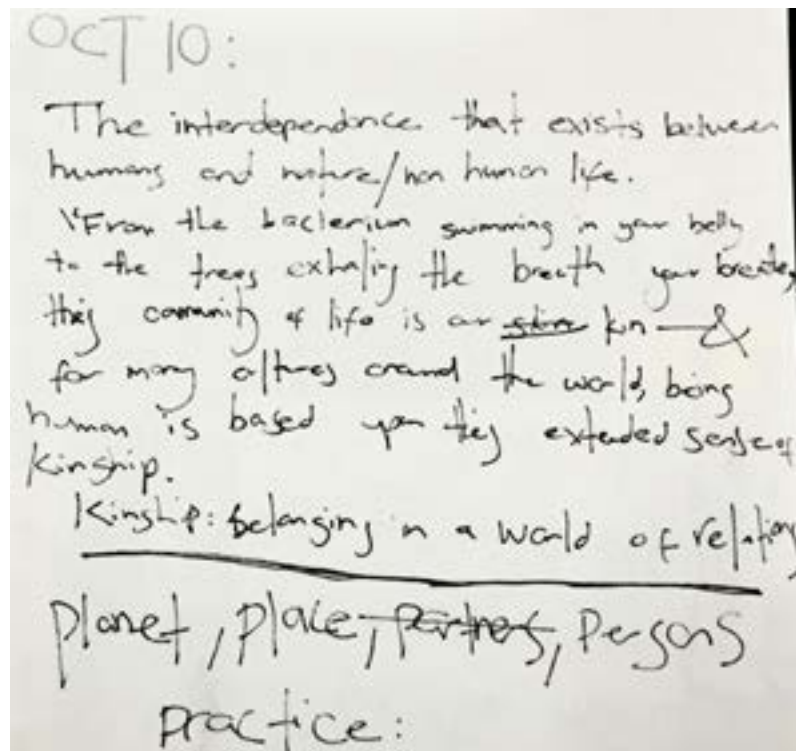 OCT 10:
The interdependence that exists between
humans and nature/non human life.
"From the bacterium swimming in your belly
to the trees exhaling the breath your breathe,
this community of life is our kin —&
for many cultures around the world, being
human is based upon this extended sense of
Kinship.
Kinship: belonging in a world of relations
planet, place, partners, Persons
practice: